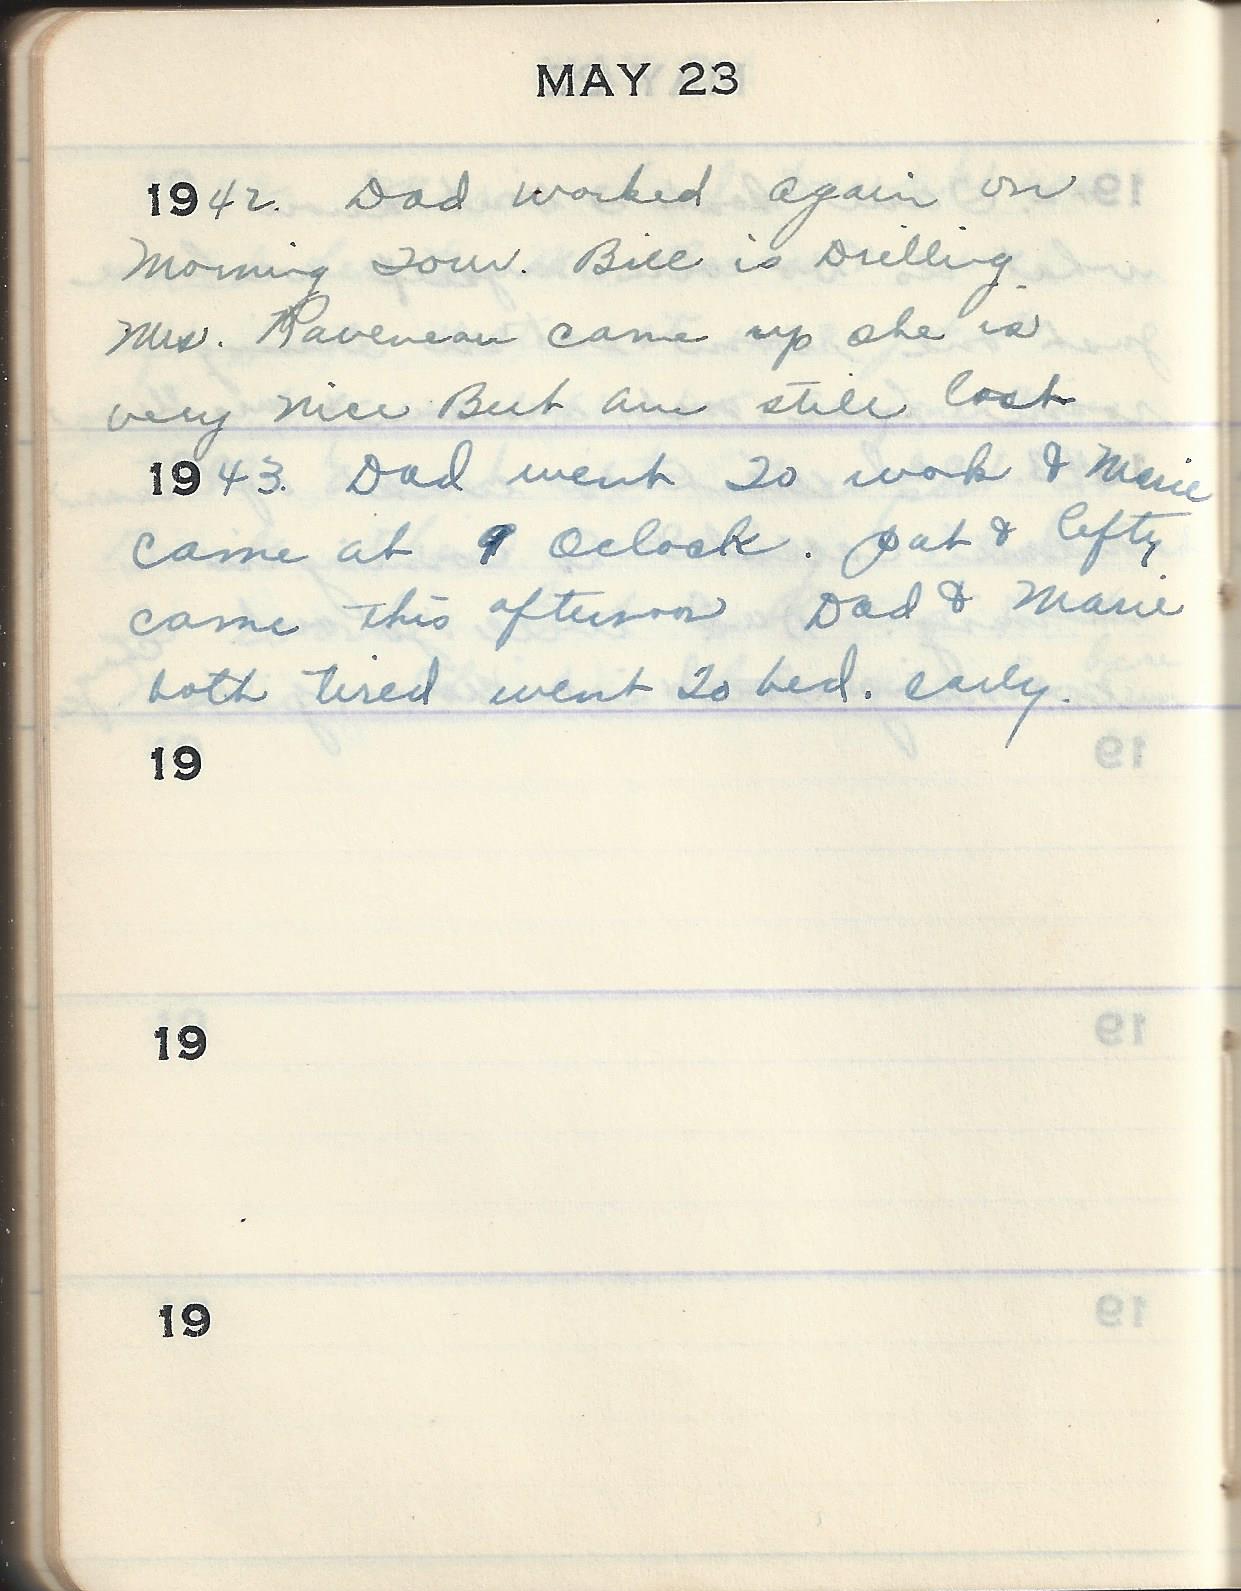 MAY 23
1942. Dad worked again on
Morning Tour. Bill is Drilling
Mrs. Raveneau came up she is
very nice But am still lost
1943. Dad went To work & Marie
came at 9 Oclock. Pat & Lefty
came This afternoon Dad & Marie
both Tired went To bed. early.
19
19
19